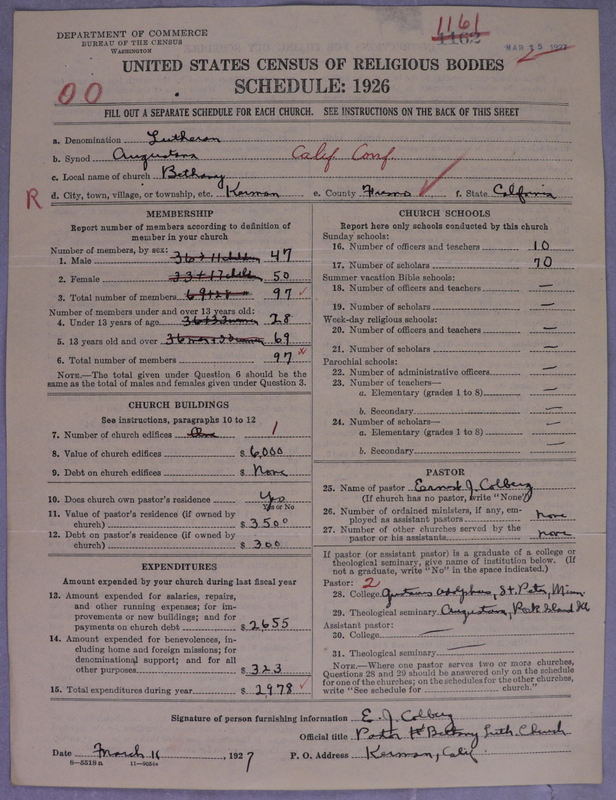 DEPARTMENT OF COMMERCE
BUREAU OF THE CENSUS
WASHINGTON
1161
1162
MAR 15 1927
UNITED STATES CENSUS OF RELIGIOUS BODIES
SCHEDULE: 1926
00
FILL OUT A SEPARATE SCHEDULE FOR EACH CHURCH. SEE INSTRUCTIONS ON THE BACK OF THIS SHEET
a. Denomination Lutheran
b. Synod Augustana Calif. Conf.
c. Local name of church Bethany
R d. City, town, village, or township, etc. Kerman e. County Fresno f. State California
MEMBERSHIP
Report number of members according to definition of member in your church
Number of members, by sex:
1. Male 47
2. Female 50
3. Total number of members 97
Number of members under and over 13 years old:
4. Under 13 years of age 28
5. 13 years old and over 69
6. Total number of members 97
NOTE.—The total given under Question 6 should be the
same as the total of males and females given under Question 3.
CHURCH BUILDINGS
See instructions, paragraphs 10 to 12
7. Number of church edifices One 1
8. Value of church edifices $ 6,000
9. Debt on church edifices $ None
10. Does church own pastor's residence Yes
Yes or No
11. Value of pastor's residence (if owned by
church) $ 3500
12. Debt on pastor's residence (if owned by
church) $ 300
EXPENDITURES
Amount expended by your church during last fiscal year
13. Amount expended for salaries, repairs,
and other running expenses; for im-
provements or new buildings; and for
payments on church debt $ 2655
14. Amount expended for benevolences, in-
cluding home and foreign missions; for
denominational support; and for all
other purposes $ 323
15. Total expenditures during year $ 2978
CHURCH SCHOOLS
Report here only schools conducted by this church
Sunday schools:
16. Number of officers and teachers 10
17. Number of scholars 70
Summer vacation Bible schools:
18. Number of officers and teachers —
19. Number of scholars —
Week-day religious schools:
20. Number of officers and teachers —
21. Number of scholars —
Parochial schools:
22. Number of administrative officers —
23. Number of teachers—
a. Elementary (grades 1 to 8) —
b. Secondary —
24. Number of scholars—
a. Elementary (grades 1 to 8) —
b. Secondary —
PASTOR
25. Name of pastor Ernest J. Colberg
(If church has no pastor, write "None")
26. Number of ordained ministers, if any, em-
ployed as assistant pastors none
27. Number of other churches served by the
pastor or his assistants none
If pastor (or assistant pastor) is a graduate of a college or
theological seminary, give name of institution below. (If
not a graduate, write "No" in the space indicated.)
Pastor: 2
28. College Gustavus Adolphus, St. Peter, Minn.
29. Theological seminary Augustana, Rock Island Ill
Assistant pastor:
30. College —
31. Theological seminary —
NOTE.—Where one pastor serves two or more churches,
Questions 28 and 29 should be answered only on the schedule
for one of the churches; on the schedules for the other churches,
write "See schedule for church."
Signature of person furnishing information E. J. Colberg
Official title Pastor Bethany Luth. Church
Date March 11, 1927 P. O. Address Kerman, Calif.
8—5518 a